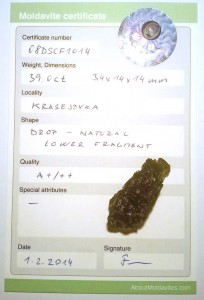 Moldavite certificate
Certificate number
68DSCF1014
Weight, Dimensions
39.0ct 34x14x14mm
Locality
KRASEJOVKA
Shape
DROP - NATURAL
LOWER FRAGMENT
Quality
A+/++
Special attributes
—
Date
Signature
1.2.2014
AboutMoldavites.com